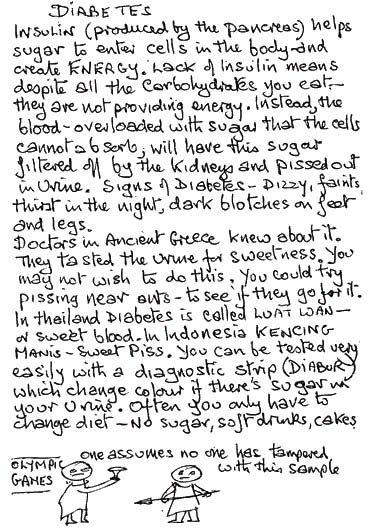 DIABETES
INSULIN (produced by the pancreas) helps
sugar to enter cells in the body and
create ENERGY. Lack of Insulin means
despite all the Carbohydrates you eat -
they are not providing energy. Instead, the
blood - overloaded with sugar that the cells
cannot absorb, will have this sugar
filtered off by the Kidneys and pissed out
in Urine. Signs of Diabetes - Dizzy, faints,
thirst in the night, dark blotches on feet
and legs.
Doctors in Ancient Greece knew about it.
They tasted the Urine for sweetness. You
may not wish to do this. You could try
pissing near ants - to see if they go for it.
In Thailand Diabetes is called LUAT WAN -
or sweet blood. In Indonesia KENCING
MANIS - Sweet Piss. You can be tested very
easily with a diagnostic strip (DIABUR)
which change colour if there's sugar in
your Urine. Often you only have to
change diet - No sugar, soft drinks, cakes
one assumes no one has tampered
with this sample
OLYMPIC
GAMES